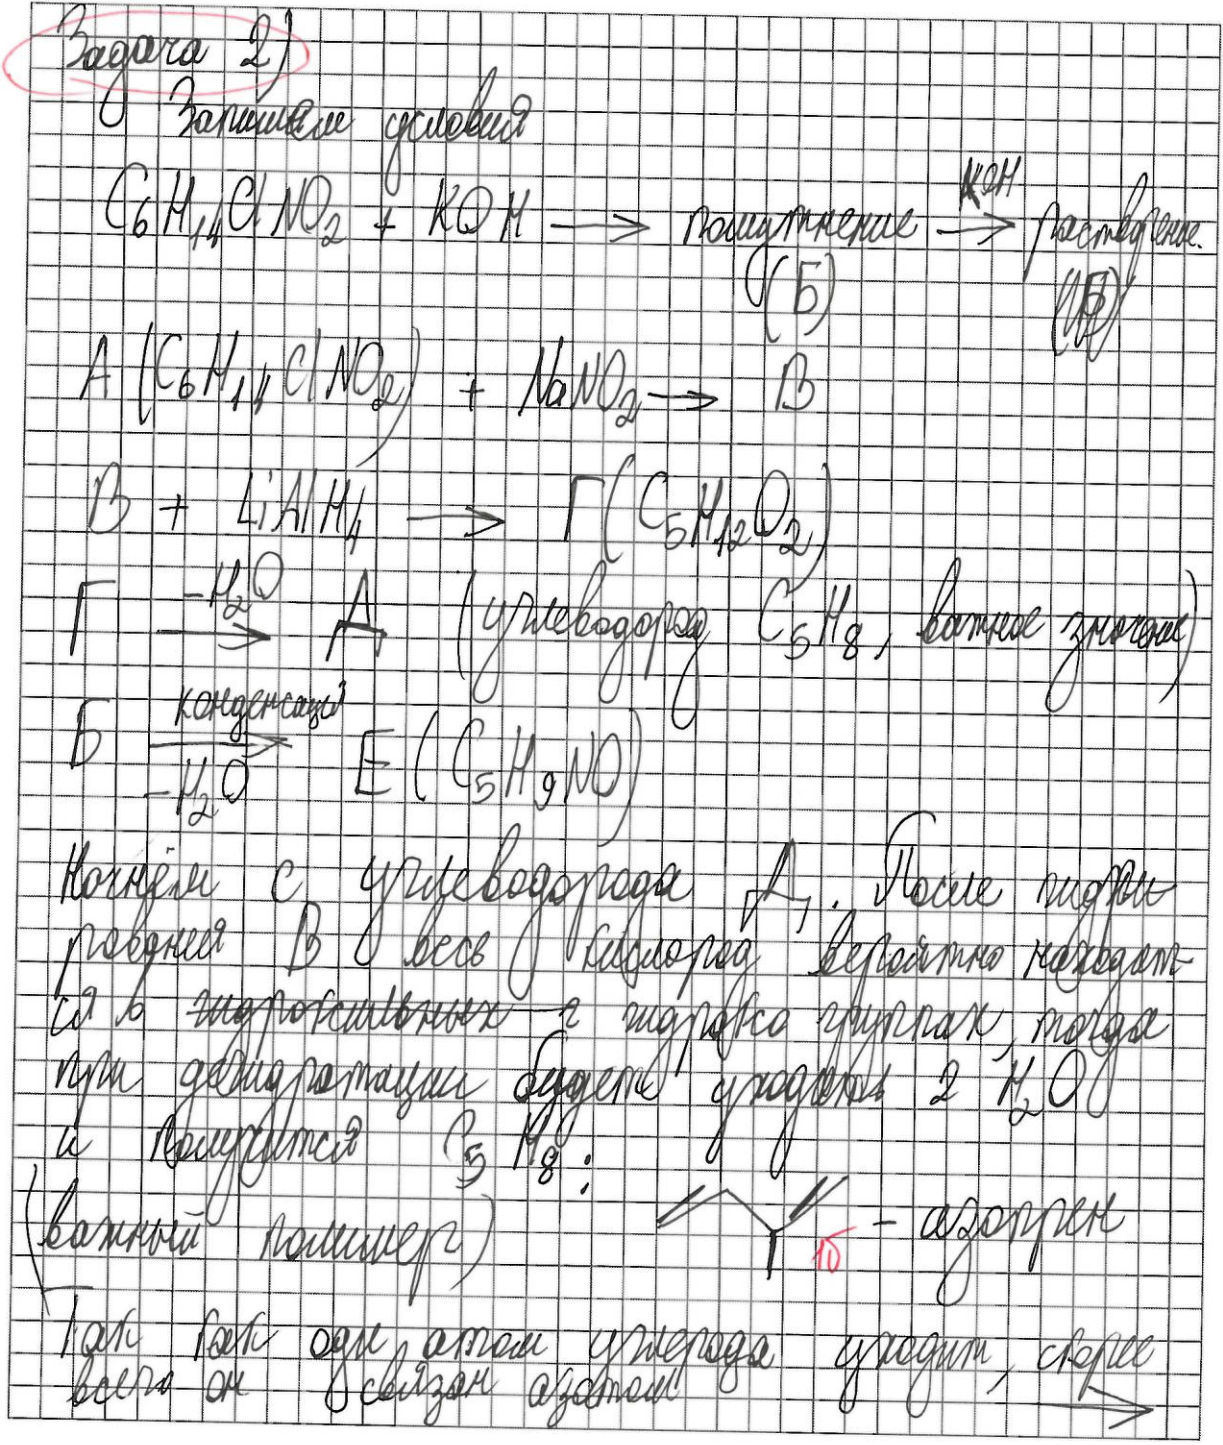 Задача 2)
Запишем условия
C₆H₁₄ClNO₂ + KOH → помутнение —KOH→ растворение.
(Б)
A (C₆H₁₄ClNO₂) + NaNO₂ → В
В + LiAlH₄ → Г (C₅H₁₂O₂)
Г —-H₂O→ Д (углеводород C₅H₈, важное значение)
Б —конденсация, -H₂O→ Е (C₅H₉NO)
Начнём с углеводорода Д. После гидри-
рования В весь кислород вероятно находит-
ся в 2 гидроксо группах, тогда
при дегидратации будет уходить 2 H₂O
и получится C₅H₈:
(важный полимер) 10 - изопрен
Так как один атом углерода уходит, скорее
всего он связан азотом